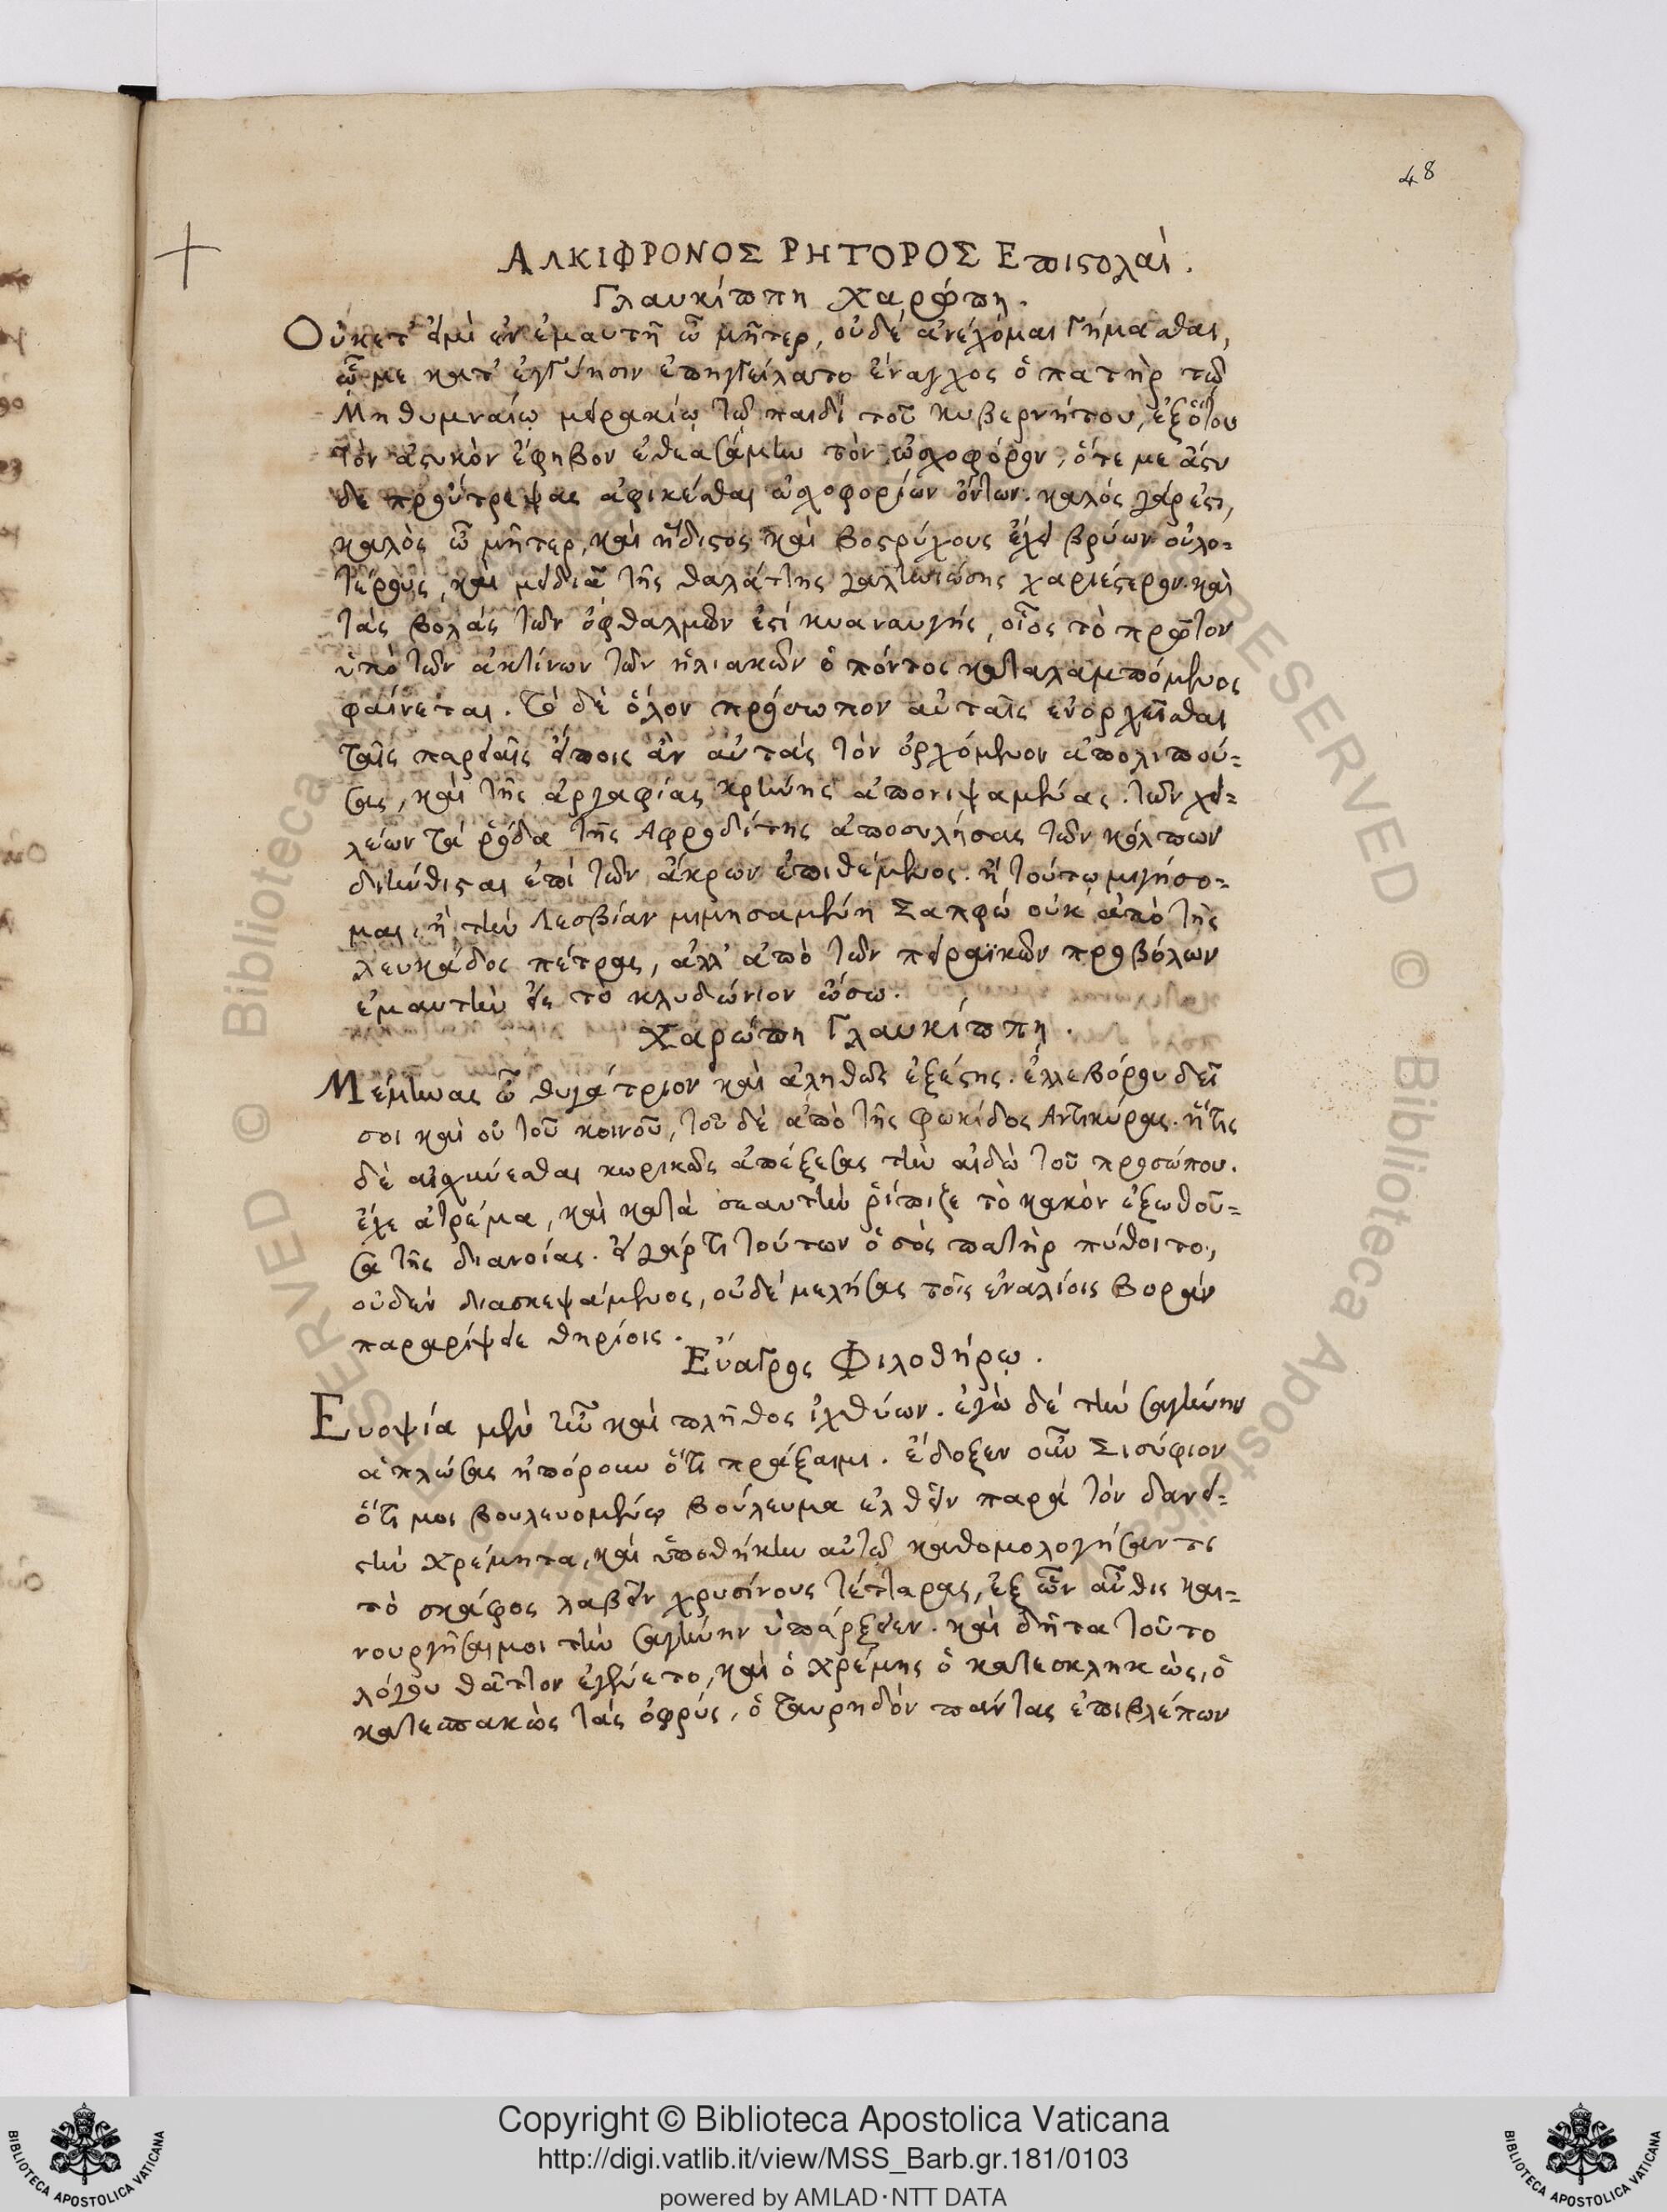 48
ΑΛΚΙΦΡΟΝΟΣ ΡΗΤΟΡΟΣ Επιστολαί.
Γλαυκίππη Χαρώπῃ.
Οὐκετ' εἰμὶ ἐν ἐμαυτῇ ὦ μῆτερ, οὐδὲ ἀνέχομαι γήμασθαι,
ᾧ με κατ' ἐγγύησιν ἐπηγγείλατο ἔναγχος ὁ πατὴρ τῷ
Μηθυμναίῳ μειρακίῳ τῷ παιδὶ τοῦ κυβερνήτου, ἐξότου
τὸν ἀστυκὸν ἔφηβον ἐθεασάμην τὸν ὠσχοφόρον, ὅτε με ἄστυ
δε προὔτρεψας ἀφικέσθαι ὠσχοφορίων ὄντων. καλὸς γάρ ἐστι,
καλὸς ὦ μῆτερ, καὶ ἥδιστος καὶ βοστρύχους ἔχει βρύων οὐλο=
τέρους, καὶ μειδιᾷ τῆς θαλάττης γαληνιώσης χαριέστερον. καὶ
τὰς βολὰς τῶν ὀφθαλμῶν ἐστὶ κυαναυγής, οἷος τὸ πρῶτον
ὑπὸ τῶν ἀκτίνων τῶν ἡλιακῶν ὁ πόντος καταλαμπόμενος
φαίνεται. Τὸ δὲ ὅλον πρόσωπον αὐταῖς ἐνορχεῖσθαι
ταῖς παρειαῖς εἴποις ἂν αὐτὰς τὸν ὀρχόμενον ἀπολιπού=
σας, καὶ τῆς ἀργαφίας κρήνης ἀπονιψαμένας. τῶν χει=
λέων τὰ ῥόδα τῆς Ἀφροδίτης ἀποσυλήσας τῶν κόλπων
διήνθισται ἐπὶ τῶν ἄκρων ἐπιθέμενος. ἢ τούτῳ μιγήσο=
μαι, ἢ τὴν Λεσβίαν μιμησαμένη Σαπφώ οὐκ ἀπὸ τῆς
λευκάδος πέτρας, ἀλλ' ἀπὸ τῶν πειραϊκῶν προβόλων
ἐμαυτὴν εἰς τὸ κλυδώνιον ὤσω.
Χαρώπη Γλαυκίππῃ.
Μέμηνας ὦ θυγάτριον καὶ ἀληθῶς ἐξέστης. ἐλλεβόρου δεῖ
σοι καὶ οὐ τοῦ κοινοῦ, τοῦ δὲ ἀπὸ τῆς φωκίδος Ἀντικύρας. ἥτις
δὲ αἰσχύνεσθαι κωρικῶς ἀπέξεσας τὴν αἰδὼ τοῦ προσώπου.
ἔχε ἀτρέμα, καὶ κατὰ σεαυτὴν ῥίπιζε τὸ κακὸν ἐξωθοῦ=
σα τῆς διανοίας. εἰ γάρ τι τούτων ὁ σὸς πατὴρ πύθοιτο,
οὐδὲν διασκεψάμενος, οὐδὲ μελήσας τοῖς ἐναλίοις βορὰν
παραρίψειε θηρίοις.
Εὔαγρος Φιλοθήρῳ.
Ευοψία μὲν ἦν καὶ πλῆθος ἰχθύων. ἐγὼ δὲ τὴν σαγήνην
ἁπλώσας ἠπόρουν ὅτι πράξαιμι. ἔδοξεν οὖν Σισύφιον
ὅτι μοι βουλευομένῳ βούλευμα ἐλθεῖν παρὰ τὸν δανει=
στὴν Χρέμητα, καὶ ὑποθήκην αὐτῷ καθομολογήσαντι
τὸ σκάφος λαβεῖν χρυσίνους τέτταρας, ἐξ ὧν αὖθις και=
νουργῆσαι μοι τὴν σαγήνην ὑπάρξειεν. καὶ δῆτα τοῦτο
λόγου θᾶττον ἐγένετο, καὶ ὁ Χρέμης ὁ κατεσκληκὼς, ὁ
κατεσπακὼς τὰς ὀφρύς, ὁ ταυρηδὸν πάντας ἐπιβλέπων
Copyright © Biblioteca Apostolica Vaticana
http://digi.vatlib.it/view/MSS_Barb.gr.181/0103
powered by AMLAD·NTT DATA